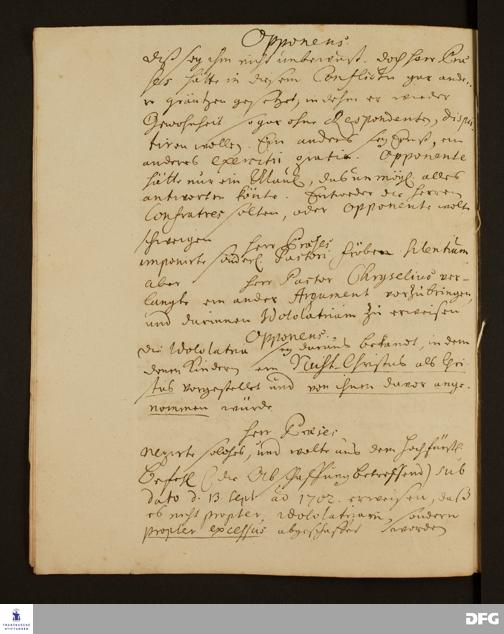 Opponens.
diß sey ihm nicht unbewust. doch Herr Præ-
ses hätte in diesem Conflictu gar ande-
re gräntzen gesetzet, indehm er wieder
Gewohnheit sogar ohne Respondenten dispu-
tiren wollen. Ein anders sey Ernst, ein
anderes exercitii gratia. Opponente
hätte nur ein Maul, das unmögl. alles
antworten könte. Entweder die Herren
Confratres solten, oder Opponente wolte
schweigen
Herr Præses
imponirte Pastori Fröben silentium
aber Herr Pastor Chryselius ver-
langte ein ander Argument vorzubringen,
und darinnen Idololatriam zu erweisen
Opponens.
die Idololatria sey daraus bekandt, indem
denen Kindern ein Nacht Christus als Chri-
stus vorgestellet und von ihnen davor ange-
nommen würde
Herr Præses
negirte solches, und wolte aus dem Hochfürstl.
Befehl (die Abschaffung betreffend) sub
dato d. 13 Sept. ao 1702. erweisen, daß
es nicht propter idololatriam, sondern
propter excessus abgeschaffet worden
TRANSKRIBUS
STIFTUNGEN
DFG